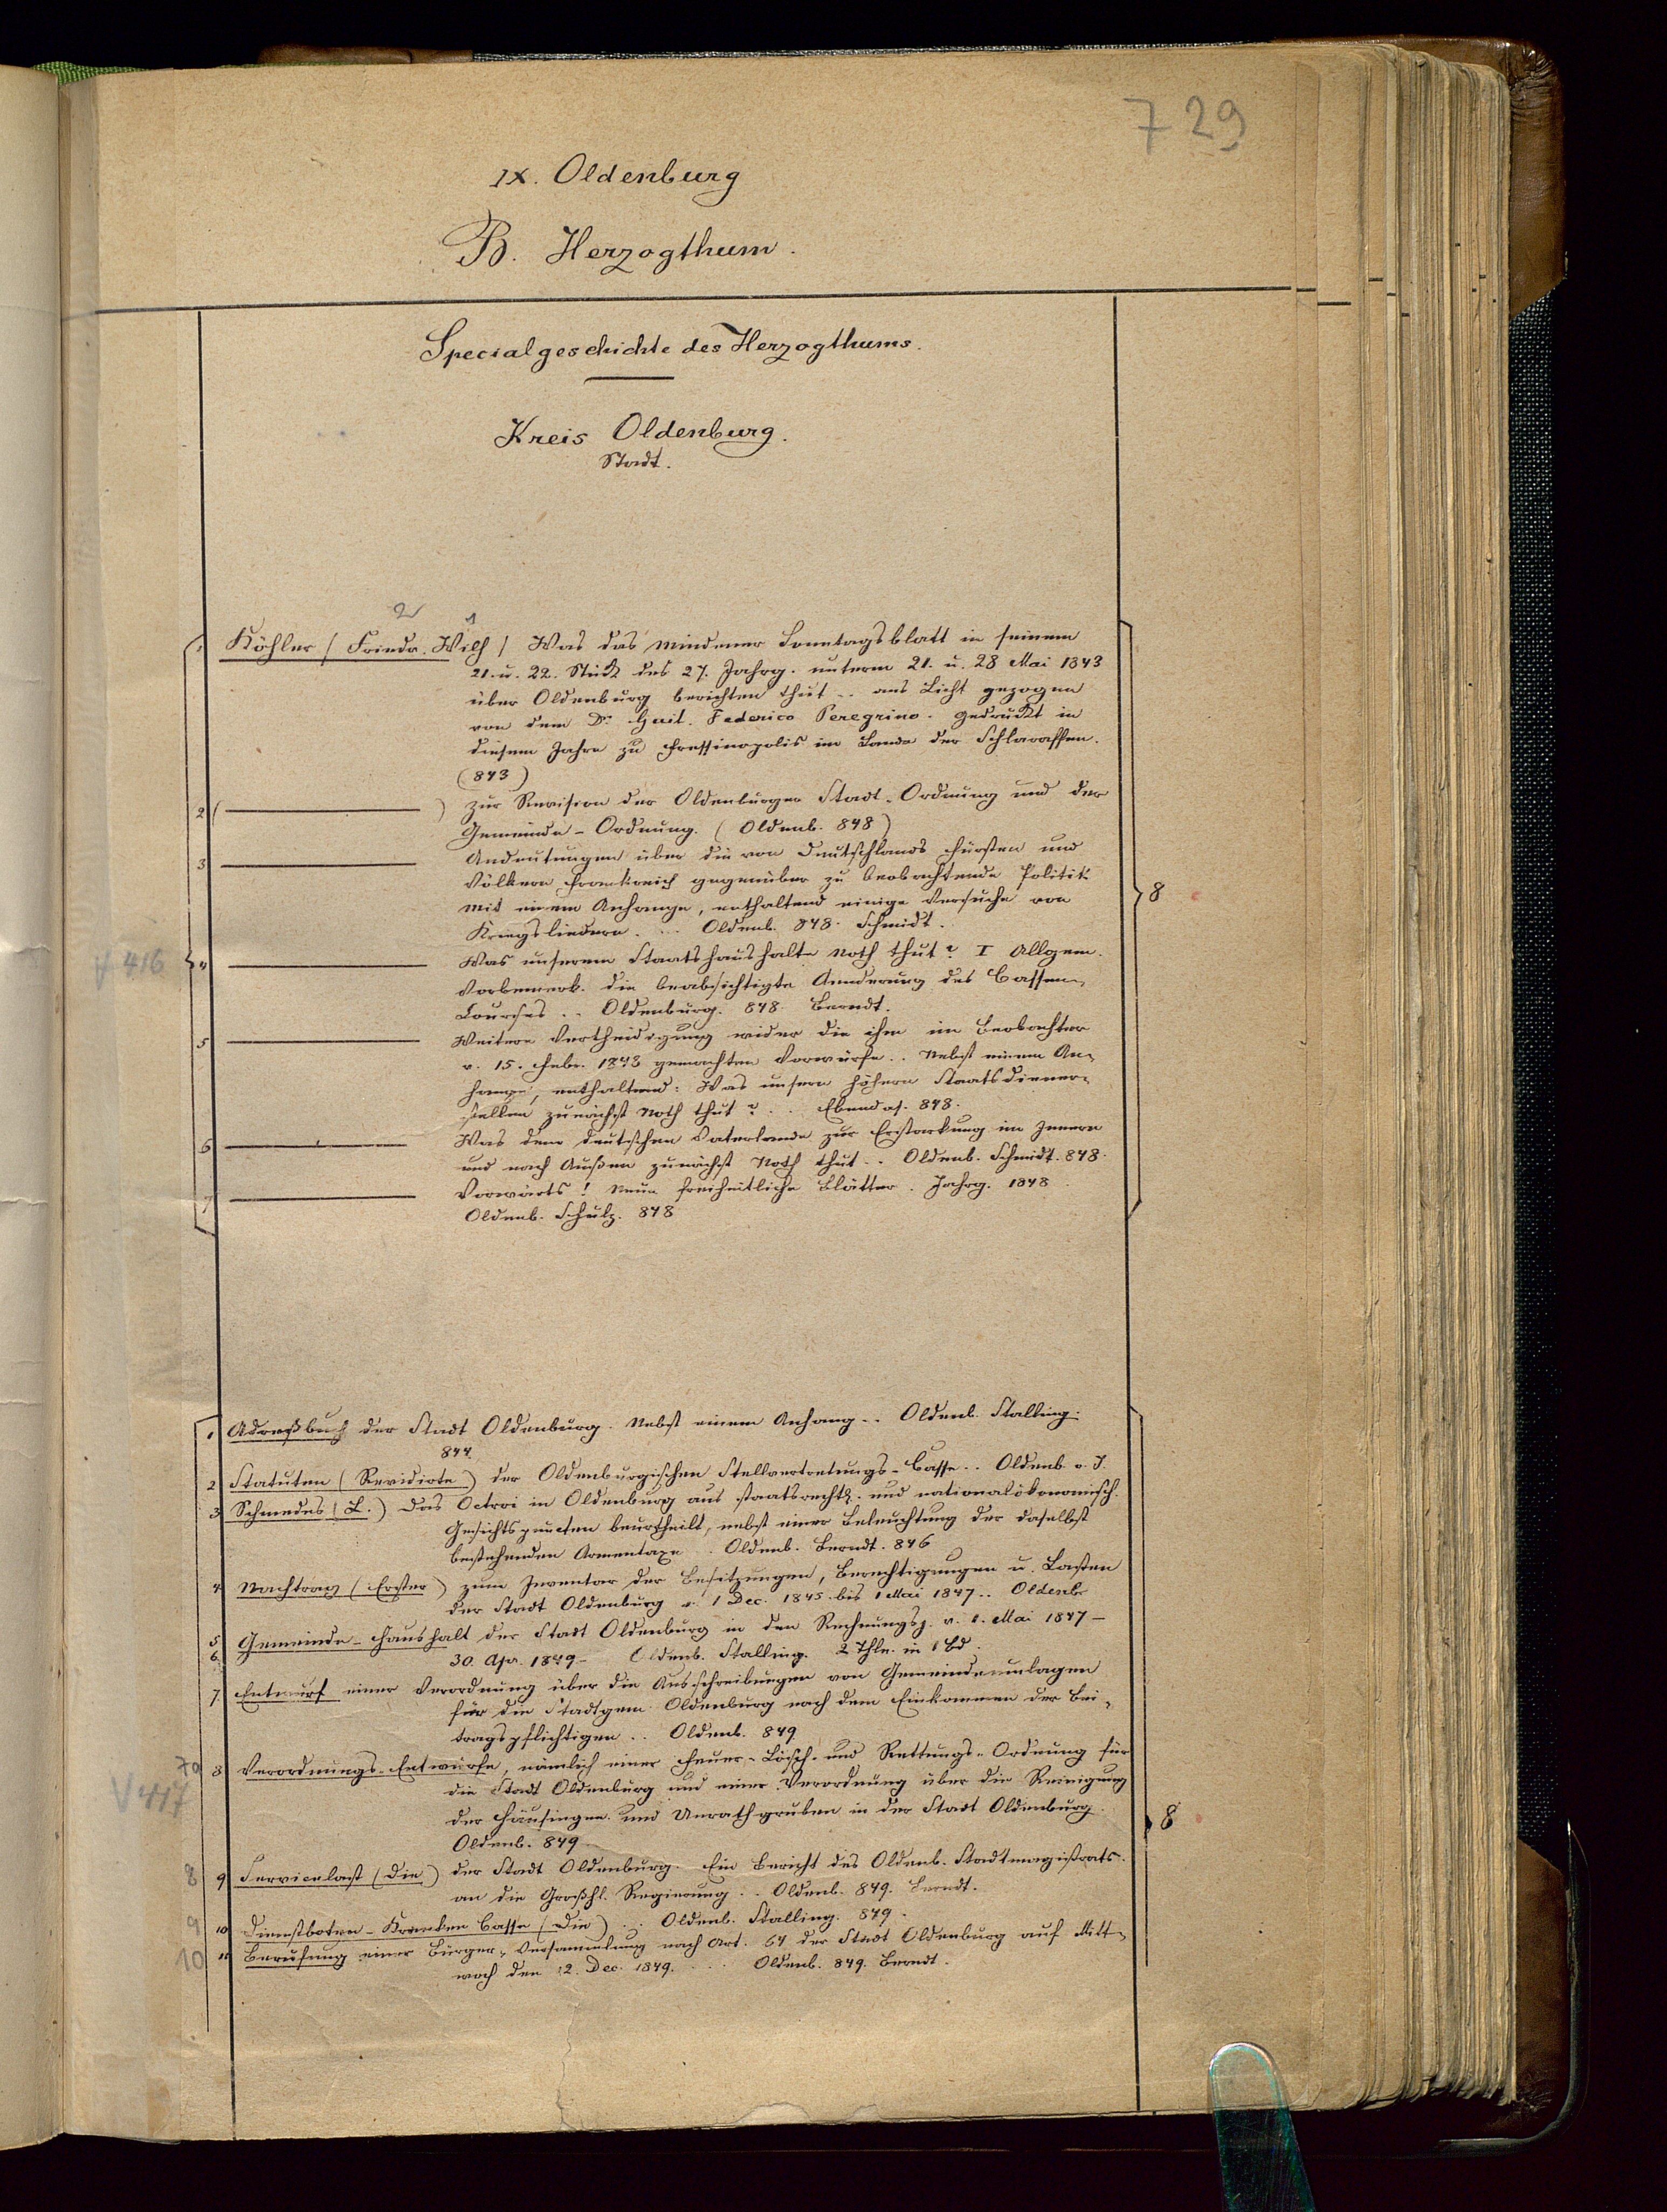 729
IX. Oldenburg
B. Herzogthum.
Specialgeschichte des Herzogthums.
Kreis Oldenburg.
Stadt.
2 1
1 Köhler (Friedr. Wilh) Was das Mindener Sonntagsblatt in seinem
21. u. 22. Stück des 27. Jahrg. unterm 21. u. 28 Mai 1843
über Oldenburg berichten thut .. ans Licht gezogen
von dem Dr. Guil. Federico Peregrino. Gedruckt in
diesem Jahre zu Fressinopolis im Lande der Schlaraffen.
(843)
2 ( ) Zur Revision der Oldenburger Stadt-Ordnung und der
Gemeinde-Ordnung. (Oldenb. 848)
3 Andeutungen über die von Deutschlands Fürsten und
Völkern Frankreich gegenüber zu beobachtende Politik
mit einem Anhange, enthaltend einige Versuche von
Kriegsliedern. ... Oldenb. 848. Schmidt.
V 416
4 Was unserem Staatshaushalte Noth thut? I Allgem.
Vorbemerk. die beabsichtigte Aenderung des Cassen-
Courses .. Oldenburg. 848. Berndt.
5 Weitere Vertheidigung wider die ihm im Beobachter
v. 15. Febr. 1848 gemachten Vorwürfe .. Nebst einem An-
hange, enthaltend: Was unsern höhern Staatsdiener-
stellen zunächst Noth thut? .. Ebendas. 848.
6 Was dem deutschen Vaterlande zur Erstarkung im Innern
und nach Außen zunächst Noth thut .. Oldenb. Schmidt. 848.
7 Vorwärts! Neue freiheitliche Blätter. Jahrg. 1848.
Oldenb. Schulz. 848
8
1 Adreßbuch der Stadt Oldenburg. Nebst einem Anhang .. Oldenb. Stalling.
844.
2 Statuten (Revidirte) der Oldenburgischen Stellvertretungs-Casse .. Oldenb. o. J.
3 Schmedes (L.) Das Octroi in Oldenburg aus staatsrechtl. und nationalökonomisch.
Gesichtspuncten beurtheilt, nebst einer Beleuchtung der daselbst
bestehenden Armentaxe .. Oldenb. Berndt. 846
4 Nachtrag (Erster) zum Inventar der Besitzungen, Berechtigungen u. Lasten
der Stadt Oldenburg v. 1 Dec. 1845. bis 1 Mai 1847 .. Oldenb.
5 Gemeinde-Haushalt der Stadt Oldenburg in den Rechnungsj. v. 1. Mai 1847 -
6 30. Apr. 1849 - Oldenb. Stalling. 2 Thle. in 1 Bd.
7. Entwurf einer Verordnung über die Ausschreibungen von Gemeindeumlagen
für die Stadtgem. Oldenburg nach dem Einkommen der Bei-
tragspflichtigen .. Oldenb. 849
7a 8 Verordnungs-Entwürfe, nämlich einer Feuer-Lösch- und Rettungs-Ordnung für
V 417
die Stadt Oldenburg und einer Verordnung über die Reinigung
der Häusinge und Unrathgruben in der Stadt Oldenburg.
Oldenb. 849
8
8 9 Servicelast (Die) der Stadt Oldenburg. Ein Bericht des Oldenb. Stadtmagistrats.
an die Großh. Regierung .. Oldenb. 849. Berndt.
9 10 Dienstboten-Kranken Casse (Die) .. Oldenb. Stalling. 849.
10 11 Berufung einer Bürger-Versammlung nach Art. 64 der Stadt Oldenburg auf Mitt-
woch den 12. Dec. 1849. ... Oldenb. 849. Berndt.